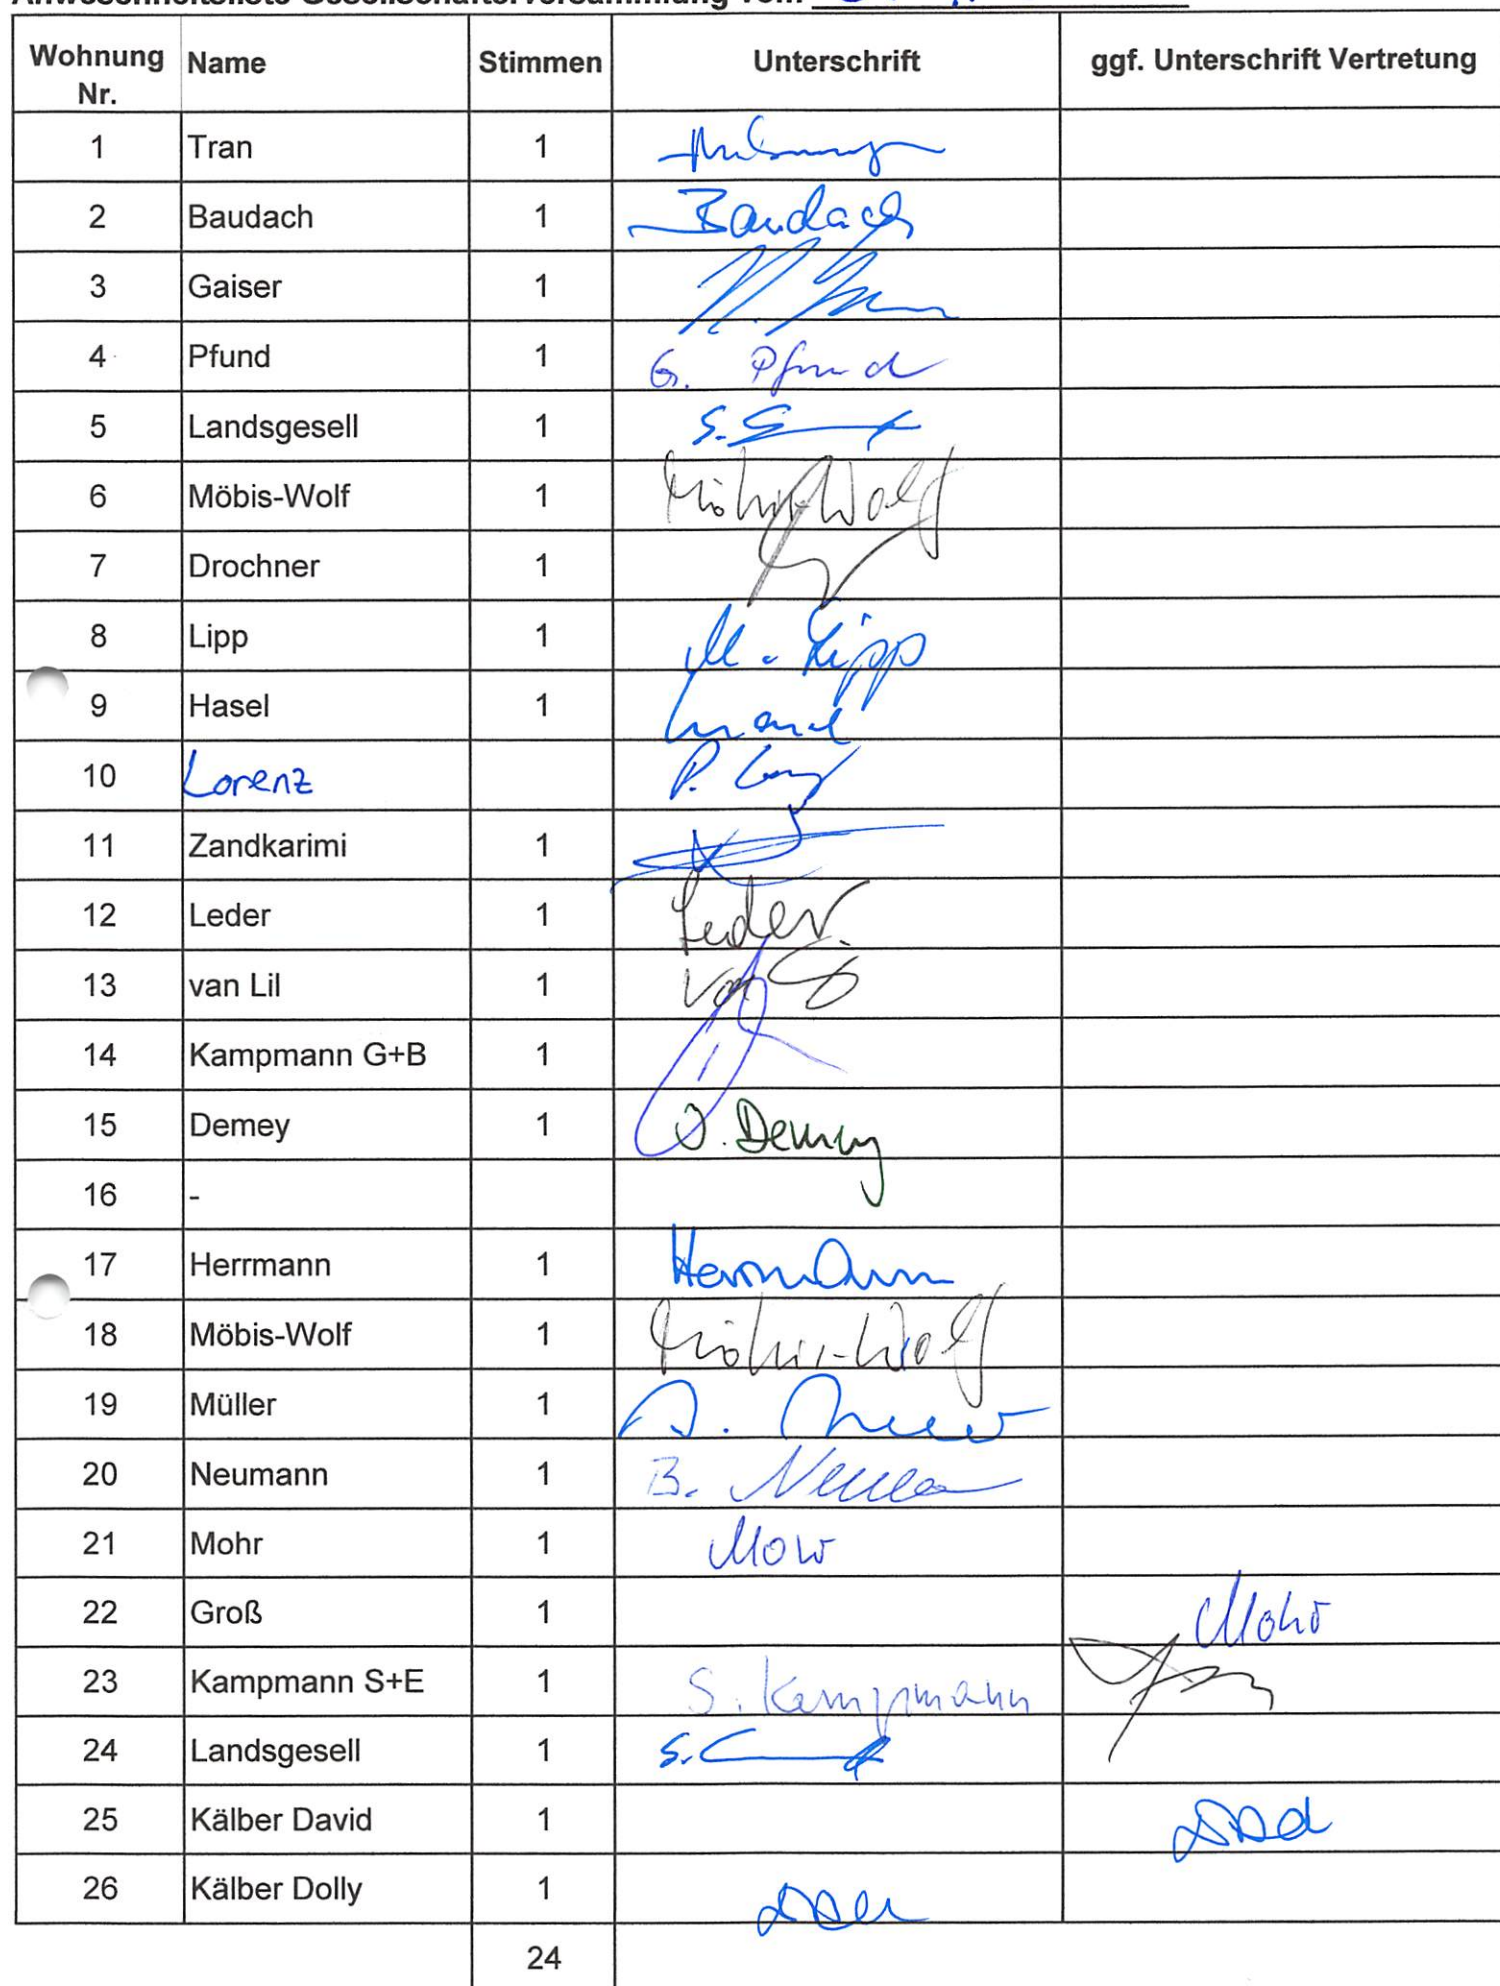 Anwesenheitsliste Gesellschafterversammlung vom
Wohnung Nr. Name Stimmen Unterschrift ggf. Unterschrift Vertretung
1 Tran 1
2 Baudach 1 Baudach
3 Gaiser 1
4 Pfund 1 G. Pfund
5 Landsgesell 1
6 Möbis-Wolf 1 Möbis-Wolf
7 Drochner 1
8 Lipp 1 M. Lipp
9 Hasel 1
10 Lorenz
11 Zandkarimi 1
12 Leder 1 Leder
13 van Lil 1
14 Kampmann G+B 1
15 Demey 1 J. Demey
16 -
17 Herrmann 1 Herrmann
18 Möbis-Wolf 1 Möbis-Wolf
19 Müller 1
20 Neumann 1 B. Neumann
21 Mohr 1 Mohr
22 Groß 1 Mohr
23 Kampmann S+E 1 S. Kampmann
24 Landsgesell 1
25 Kälber David 1
26 Kälber Dolly 1
24